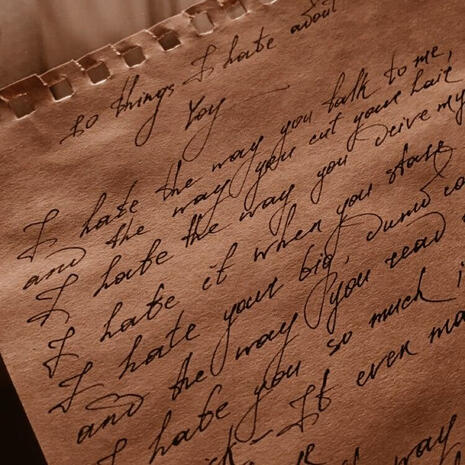 10 things I hate about
You —
I hate the way you talk to me,
and the way you cut your hair
I hate the way you drive my
I hate it when you stare
I hate your big, dumb co
and the way you read
I hate you so much i
- It even ma
way